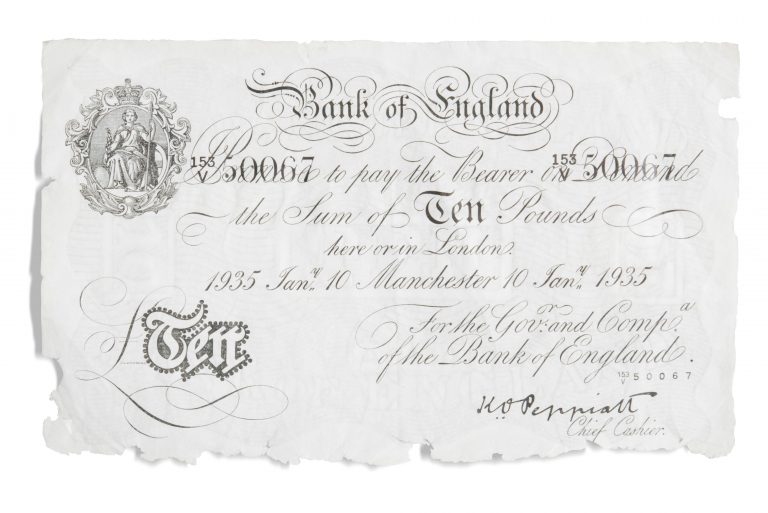 Bank of England
153
V 50067 153
V 50067
Promise to pay the Bearer on Demand
the Sum of Ten Pounds
here or in London.
1935 Jan.y 10 Manchester 10 Jan.y 1935
For the Gov.r and Comp.a
of the Bank of England.
153
V 50067
£Ten
K O Peppiatt
Chief Cashier.